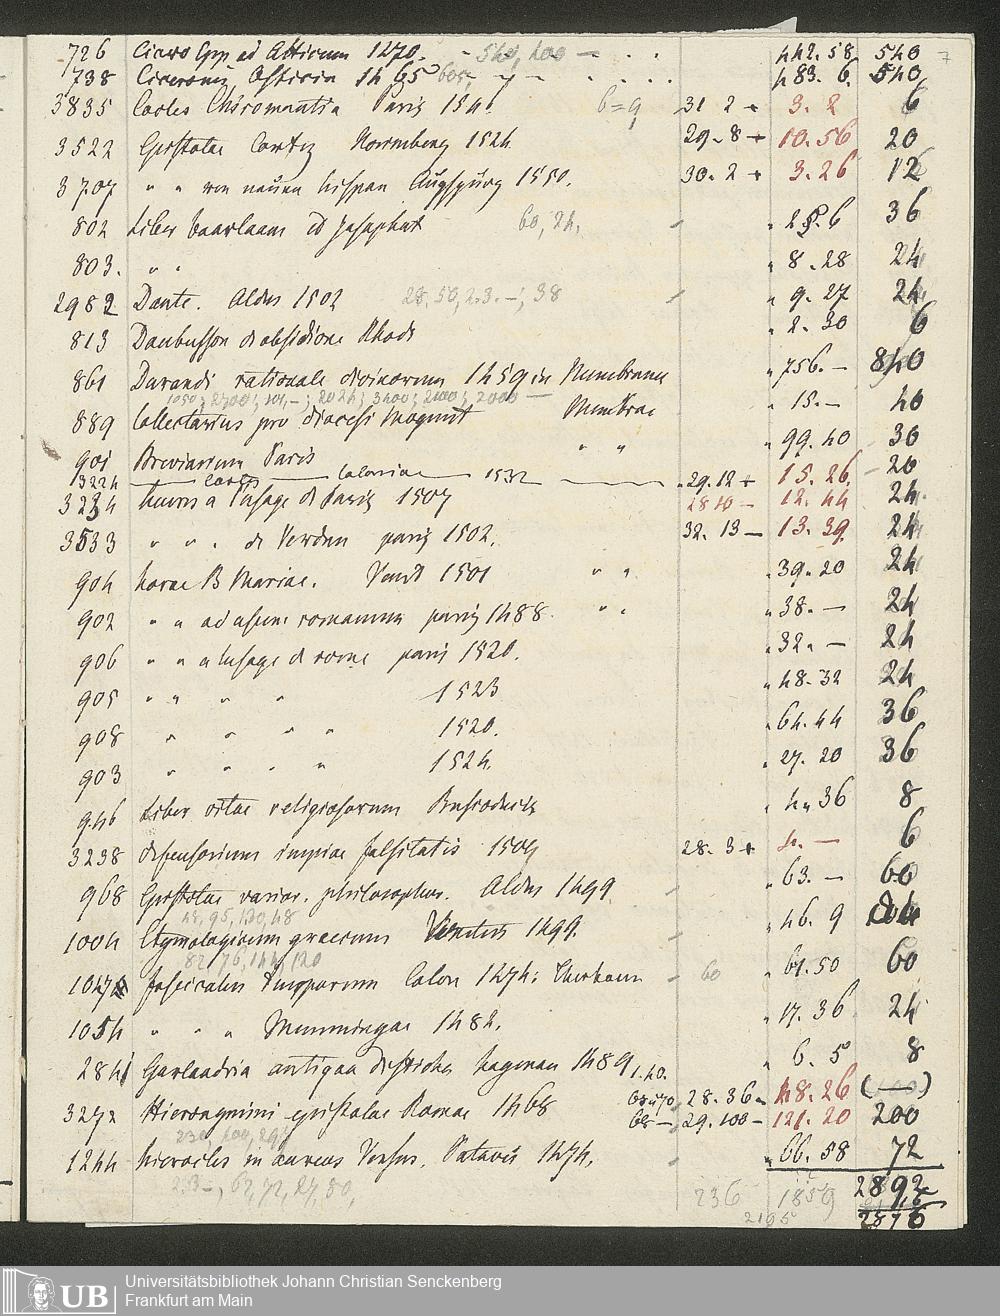 726 Cicero Epp ad Atticum 1470. - 540, 400 - 442. 58 540 7
738 Ciceronis Officia 1465 605 - 483. 6. 540
3835 Cocles Chiromantia Paris 1546 6=9 31 2 + 3. 2 6
3522 Epistolae Cortez Noremberg 1524 29. 8 + 10. 56 20
3707 " " von neuen hispan Augspurg 1550. 30. 2 + 3. 26 12
802 Liber barlaam et Josaphat 60, 24. 25. 6 36
803. " " 8. 28 24
2982 Dante. Aldus 1502 28, 50, 2. 3. -; 38 9. 27 24
813 Daubusson de obsidione Rhodi 2. 30 6
861 Durandi rationale divinorum 1459 in Membrana 756. - 840
1050; 2700; 101, -; 2024; 3400; 2000; 2000 -
889 Collectarius pro diocesi mogunt Membrae 15. - 40
901 Breviarium Paris " " 99. 40 30
3224 Coloniae 1532 29. 12 + 15. 26. 20
3234 heures a l'usage de Paris 1507 28 10 - 12. 44 24
3533 " " . de Verdun paris 1502. 32. 13 - 13. 39. 24
904 horae B Mariae. Vend 1501 " " 39. 20 24
902 " " ad usum romanum paris 1488. " " 38. - 24
906 " " a lusage de rome paris 1520. 32. - 24
905 " " " " 1523 48. 32 24
908 " " " " 1520. 64. 44 36
903 " " " " 1524 27. 20 36
946 Liber vitae religiosorum 4. 36 8
3238 defensorium impiae falsitatis 1509 28. 3 + 4. - 6
968 Epistolae varior. philosophor. Aldus 1499 63. - 60
48, 95, 130, 48
1004 Etymologicum graecum Venetiis 1499. 46. 9
82, 76, 144, 120
1047 fasciculus temporum Colon 1474: Therhoern 60 61. 50 60
1054 " " " Memmingae 1482. 17. 36 24
2841 Garlandria antiqua disticha hagenau 1489 1. 40. 6. 5 8
28. 36 48. 26
3272 Hieronymini epistolae Romae 1468 68 - 29. 100 - 121. 20 200
230, 400, 297
1244 hierocles in aureos Versus. Patavii 1474. 66. 58 72
23 -, 67, 72, 27, 50, 236 1859 2892
2195 2876
UB Universitätsbibliothek Johann Christian Senckenberg
Frankfurt am Main